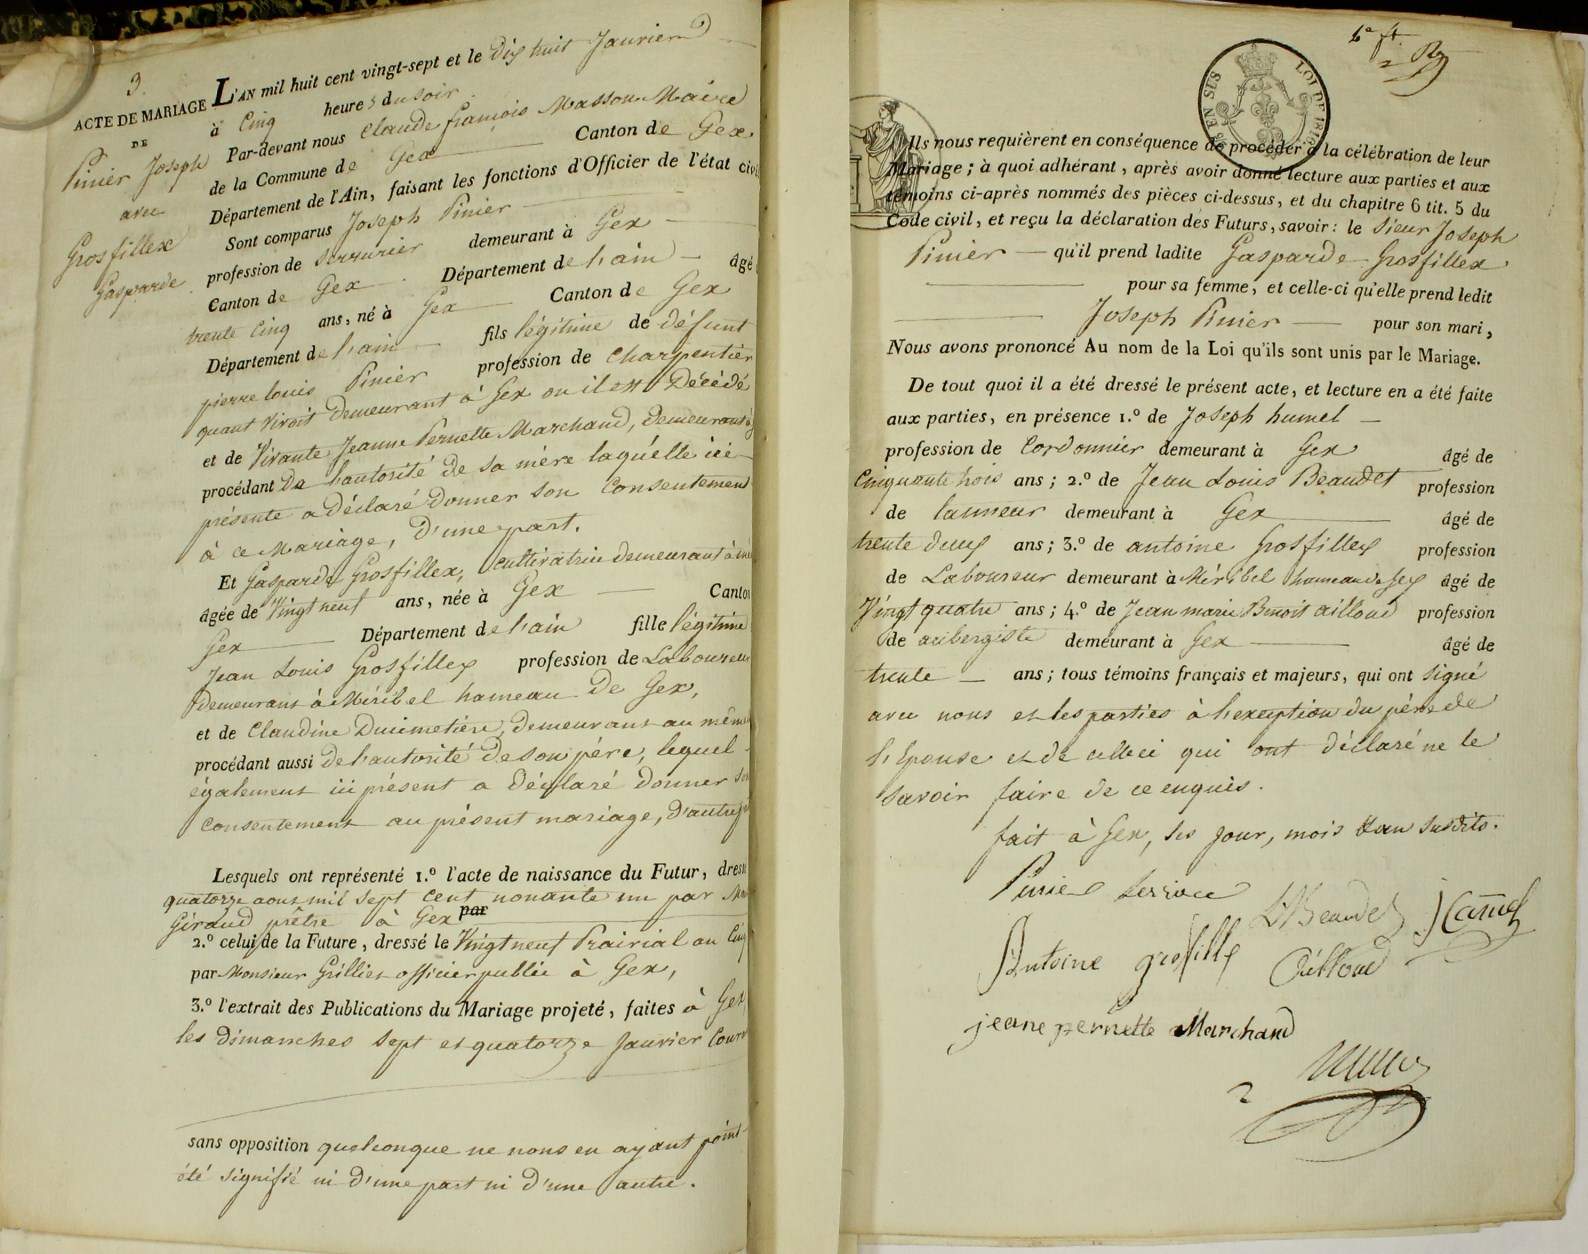 3.
ACTE DE MARIAGE
DE
Pinier Joseph
avec
Grosfillex
Gasparde
L'AN mil huit cent vingt-sept et le dix huit Janvier
à Cinq heures du soir
Par-devant nous Claude françois Masson Maire
de la Commune de Gex Canton de Gex
Département de l'Ain, faisant les fonctions d'Officier de l'état civil
Sont comparus Joseph Pinier
profession de Serrurier demeurant à Gex
Canton de Gex Département de l'ain âgé
trente Cinq ans, né à Gex Canton de Gex
Département de l'ain fils légitime de défunt
pierre louis Pinier profession de Charpentier
quant vivoit demeurant à Gex ou il est Décédé
et de Vivante Jeanne Pernette Marchand, demeurant à
procédant De l'autorité de sa mère laquélle ici
présente a déclaré donner son Consentement
à ce Mariage, D'une part.
Et Gasparde Grosfillex, Cultivatrice demeurant à
âgée de Vingt neuf ans, née à Gex Canton
Gex Département de l'ain fille légitime
Jean Louis Grosfillex profession de Laboureur
demeurant à Méribel hameau De Gex,
et de Claudine Ducimetière, demeurant au même
procédant aussi De l'autorité De son père, lequel
également ici présent a déclaré donner son
Consentement au présent mariage, D'autre
Lesquels ont représenté 1.º l'acte de naissance du Futur, dressé
quatorze aout mil sept cent nonante un par
Giraud prêtre à Gex par
2.º celui de la Future, dressé le Vingt neuf Prairial an Cinq
par Monsieur Grillier officier public à Gex,
3.º l'extrait des Publications du Mariage projeté, faites à Gex,
les dimanches sept et quatorze Janvier Cour
sans opposition quelconque ne nous en ayant point
été signifié ni d'une part ni d'une autre.
EN SUS
LOI DE 1816
Ils nous requièrent en conséquence de procéder à la célébration de leur
Mariage ; à quoi adhérant, après avoir donné lecture aux parties et aux
témoins ci-après nommés des pièces ci-dessus, et du chapitre 6 tit. 5 du
Code civil, et reçu la déclaration des Futurs, savoir : le Sieur Joseph
Pinier qu'il prend ladite Gasparde Grosfillex
pour sa femme, et celle-ci qu'elle prend ledit
Joseph Pinier pour son mari,
Nous avons prononcé Au nom de la Loi qu'ils sont unis par le Mariage.
De tout quoi il a été dressé le présent acte, et lecture en a été faite
aux parties, en présence 1.º de Joseph humel
profession de Cordonnier demeurant à Gex âgé de
Cinquante trois ans ; 2.º de Jean Louis Beaudet profession
de tanneur demeurant à Gex âgé de
trente deux ans ; 3.º de antoine Grosfillex profession
de Laboureur demeurant à Méribel hameau de Gex âgé de
Vingt quatre ans ; 4.º de Jean marie Benoit ailloud profession
de aubergiste demeurant à Gex âgé de
trente ans ; tous témoins français et majeurs, qui ont signé
avec nous et les parties à l'exception du père de
l'Epouse et de celle ci qui ont déclaré ne le
savoir faire de ce enquis.
fait à Gex, les jour, mois & an susdits.
Pinier
Antoine grosfillex
Ailloud
jeane pernette Marchand